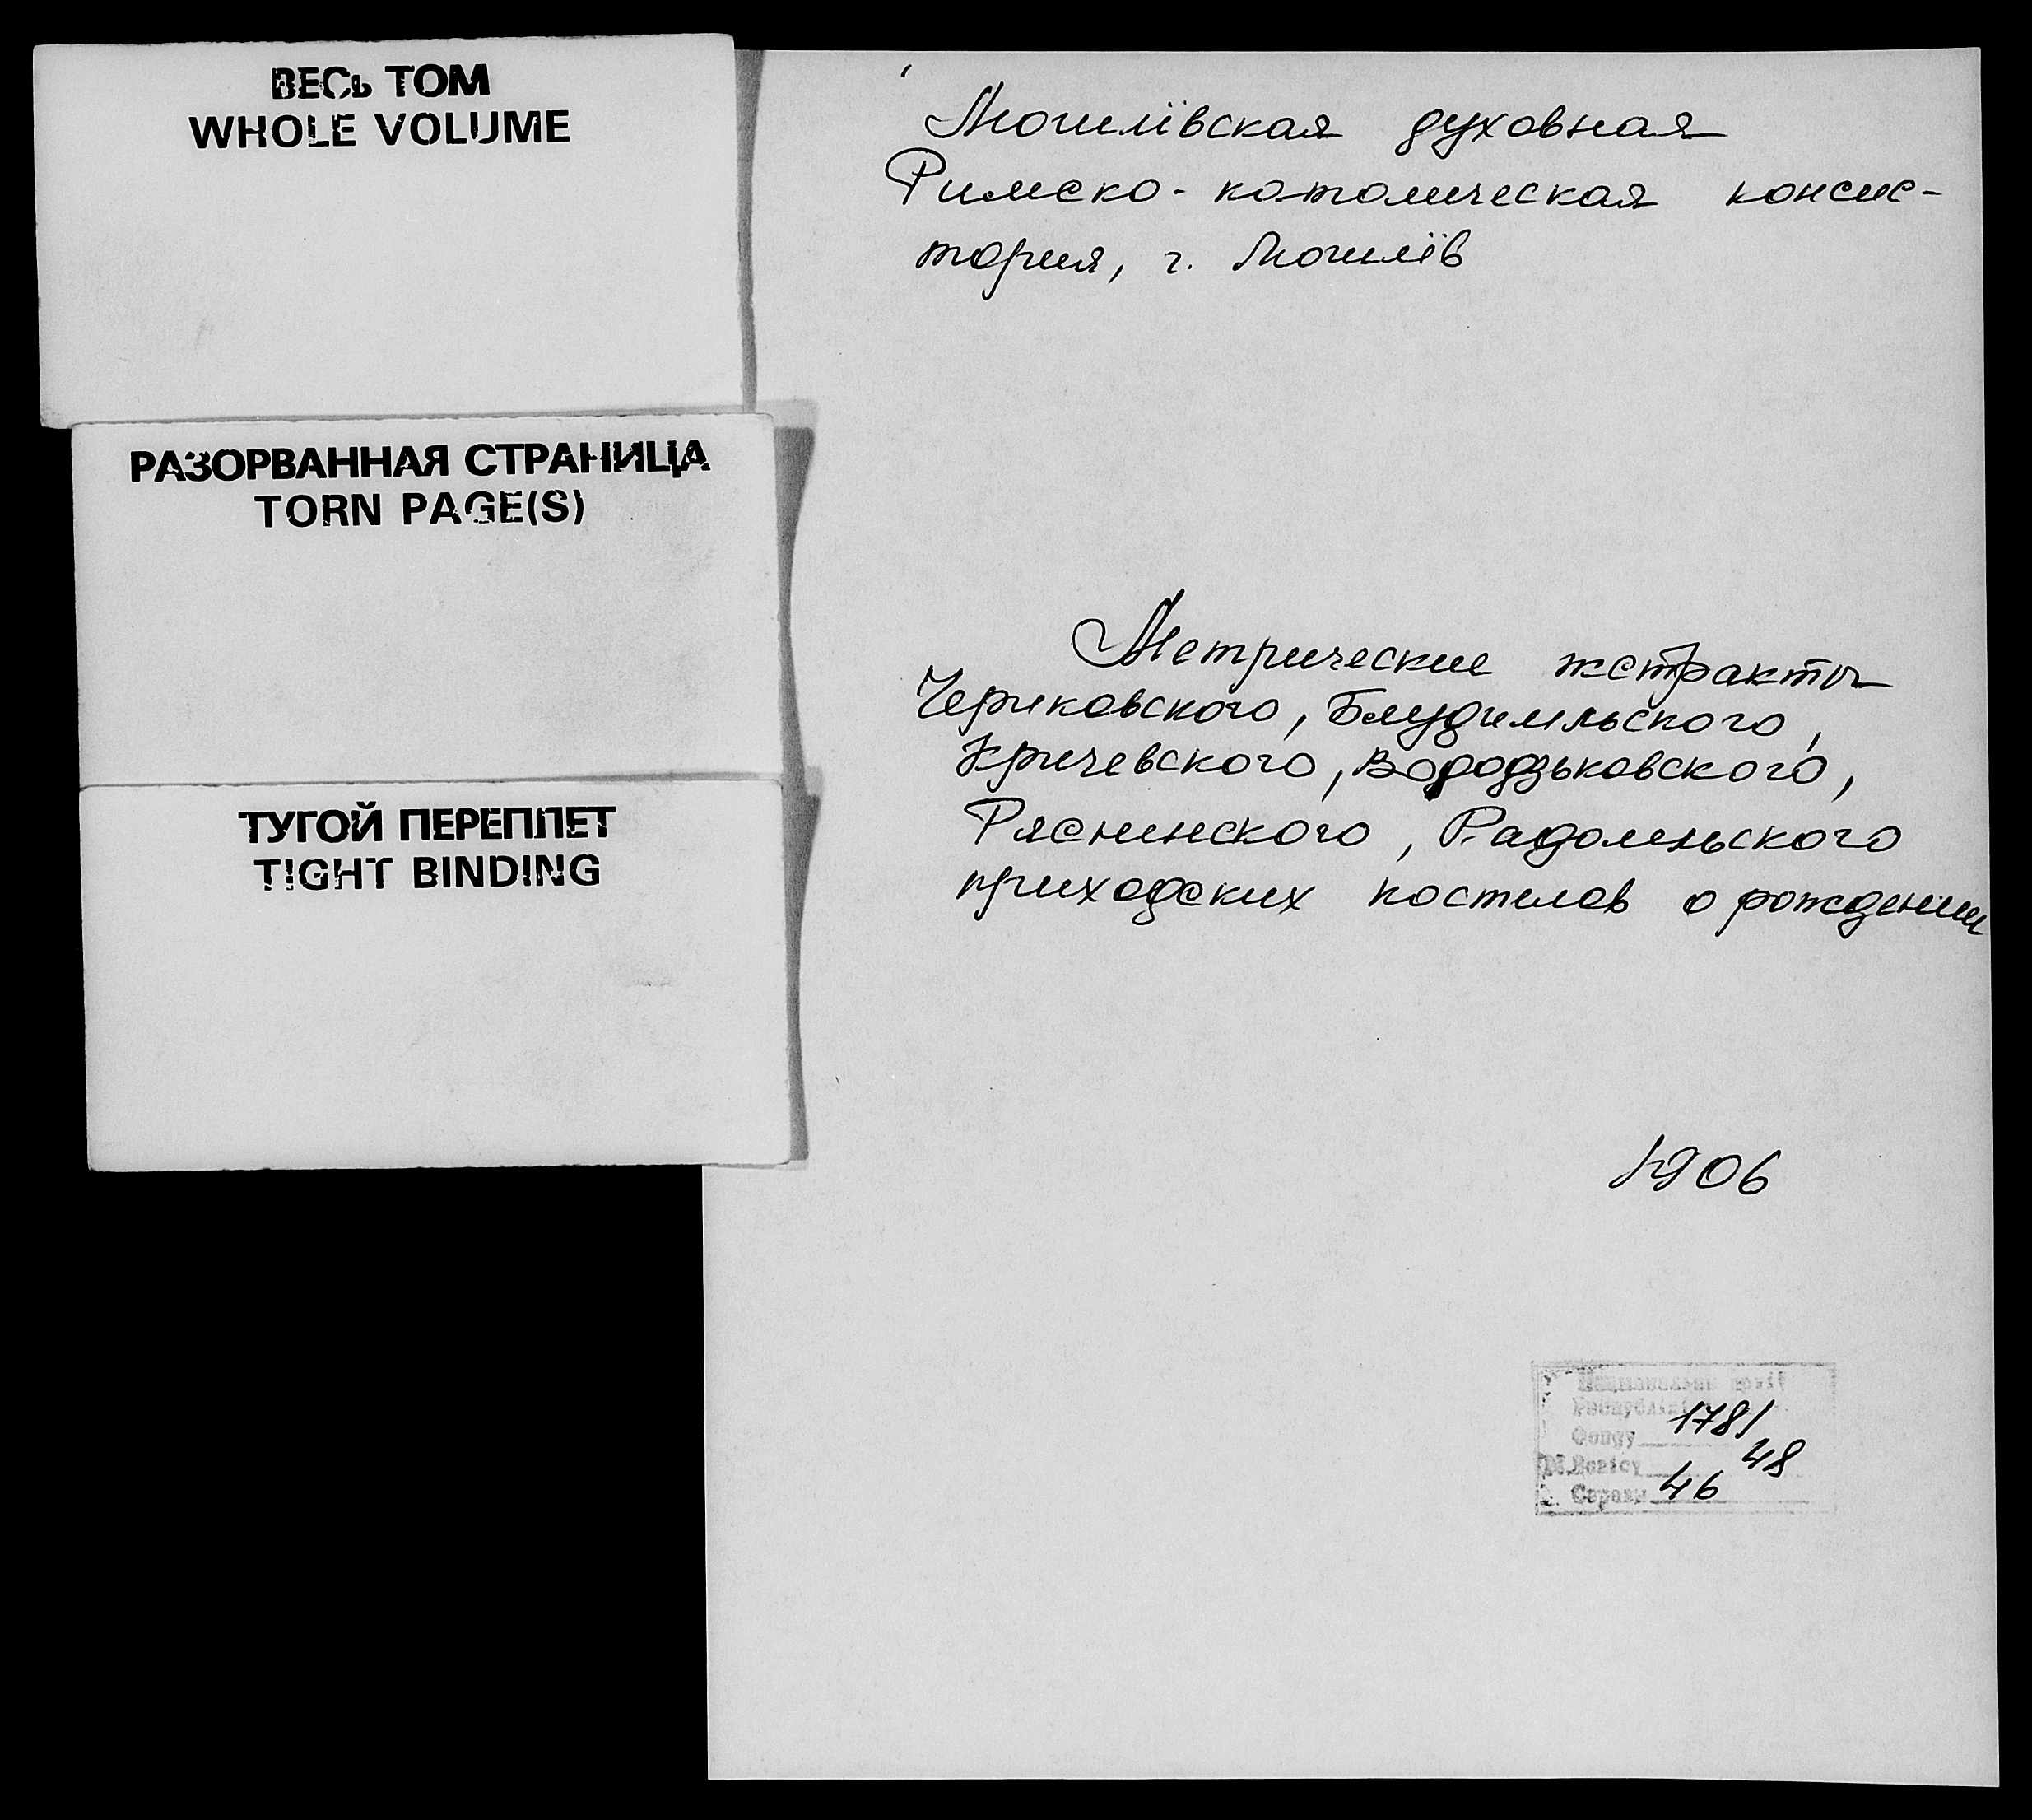 ВЕСЬ ТОМ
WHOLE VOLUME
РАЗОРВАННАЯ СТРАНИЦА
TORN PAGE(S)
ТУГОЙ ПЕРЕПЛЕТ
TIGHT BINDING
Могилёвская духовная
Римско-католическая консис-
тория, г. Могилёв
Метрические экстракты
Чериковского,
Кричевского, Вородзьковского,
Ряснинского, Радомльского
приходских костелов о рождении
1906
Нацыянальны архіў
Рэспублікі
Фонду 1781
Вопісу 48
Справы 46